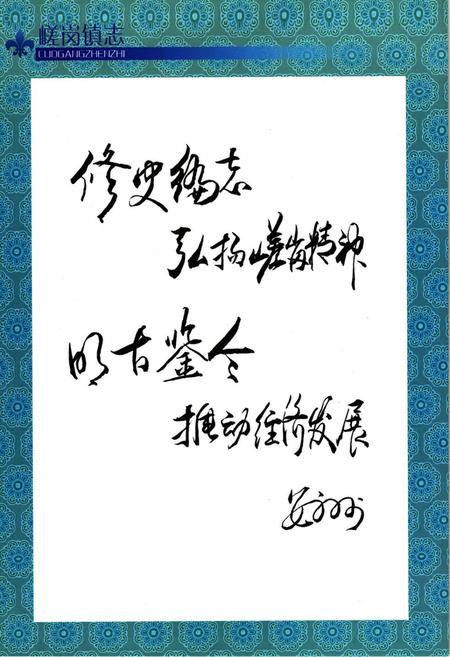 嵯岗镇志
CUOGANGZHENZHI
修史编志
弘扬嵯岗精神
明古鉴今
推动经济发展